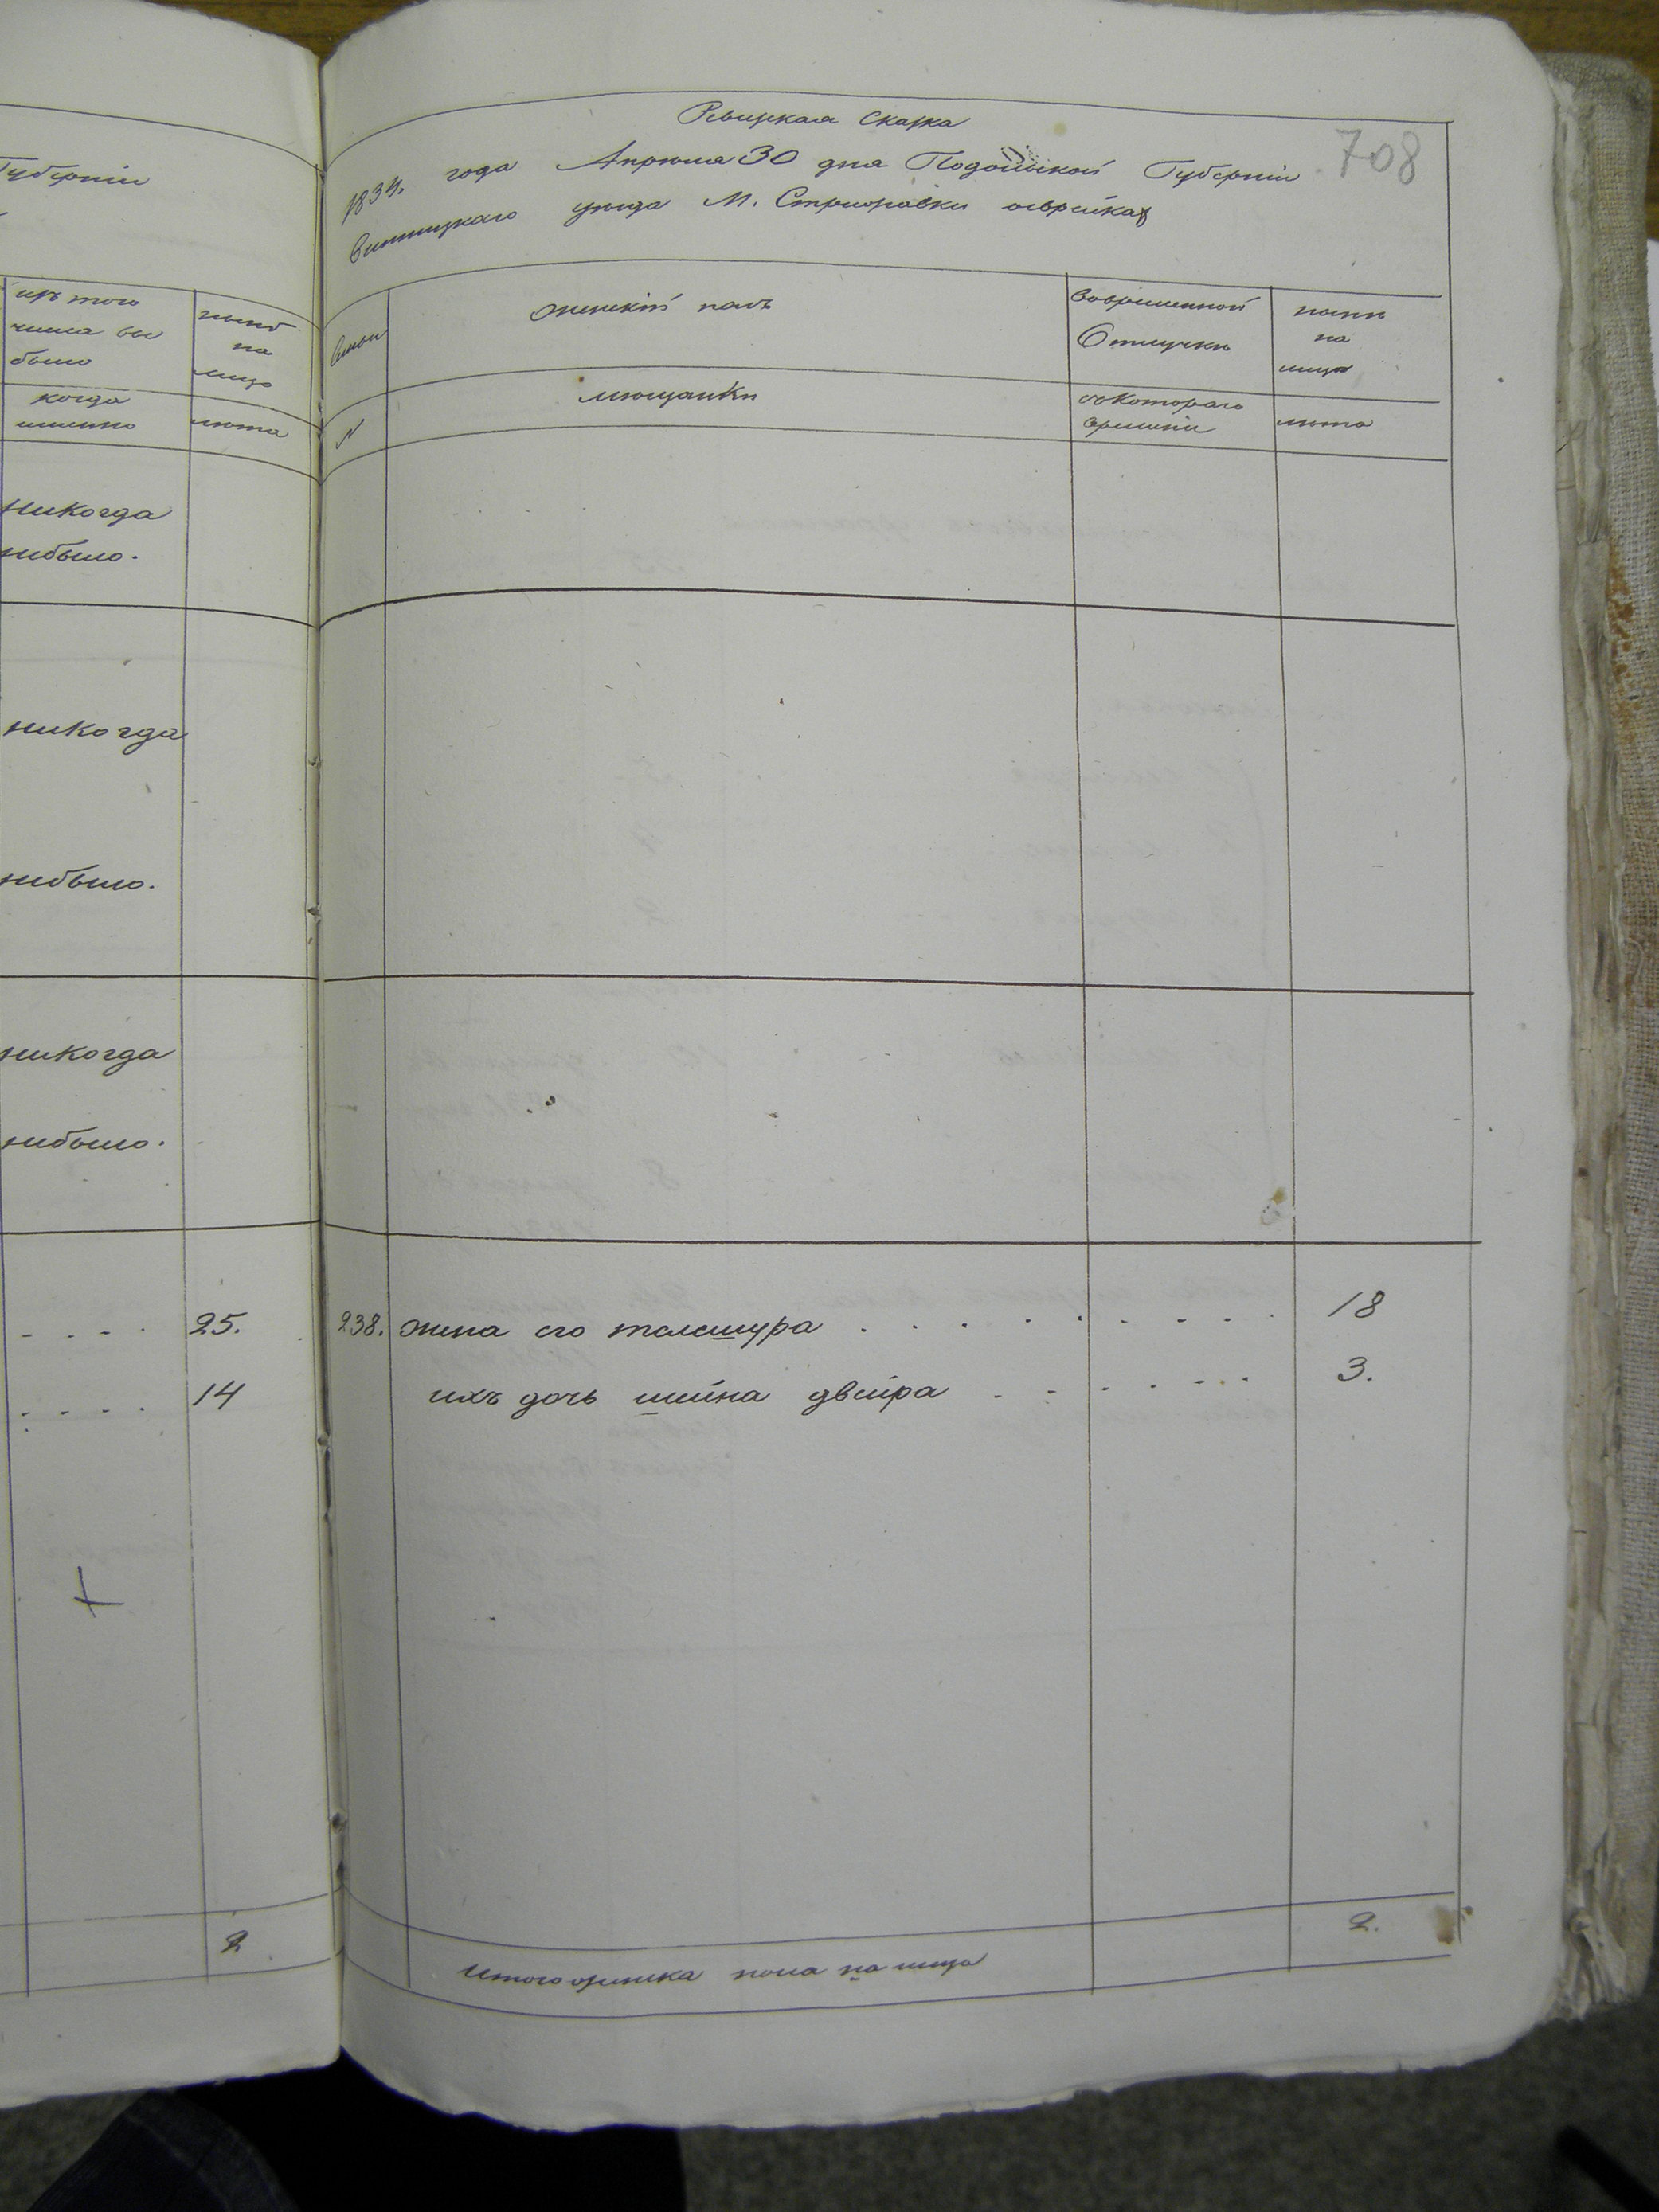 Губернiи
изъ того
числа вы
было
ныне
на
лицо
когда
именно
лета
никогда
небыло.
никогда
небыло.
никогда
небыло.
25.
14
2
Ревизкая Сказка
708
1834. года Апреля 30 дня Подольской Губернiи
Винницкаго уезда М. Стрижовки оевреехъ
женскiй полъ
вовременной
Отлучке
ныне
на
лицо
№
мещанки
скотораго
времени
лета
238. жена его
18
ихъ дочь шейна двейра
3.
Итого женска пола на лицо
2.